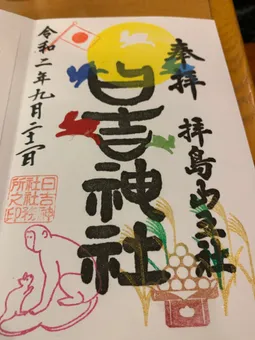 奉拝
拝島山王社
日吉神社
令和二年九月二十一日
日吉神
社社務
所之印